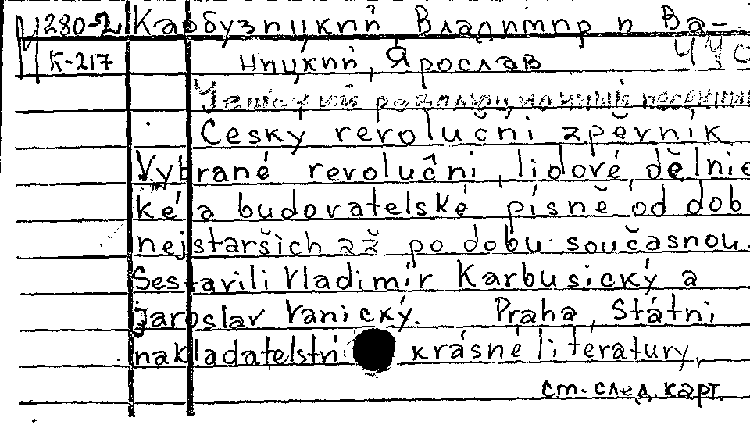 И280-2 Карбузицкий Владимир и Ва-
К-217 ницкий, Ярослав
Český revoluční zpěvník
Vybrané revoluční, lidové, dělnic
ké a budovatelské písně od dob
nejstarších až po dobu současnou.
Sestavili Vladimír Karbusický a
Jaroslav Vanický. Praha, Státní
nakladatelství krásné literatury,
см. след. карт.